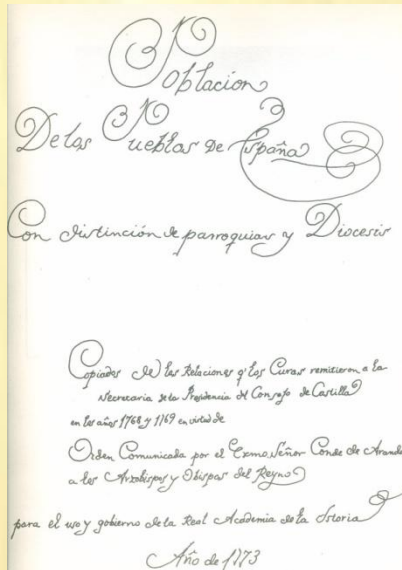 Poblacion
De los Pueblos de España
Con distinción de parroquias y Diocesis
Copiados de las Relaciones q los Curas remitieron a la
Secretaria de la Presidencia del Consejo de Castilla
en los años 1768 y 1769 en virtud de
Orden Comunicada por el Exmo. Señor Conde de Aranda
a los Arzobispos y Obispos del Reyno
para el uso y gobierno de la Real Academia de la Istoria
Año de 1773